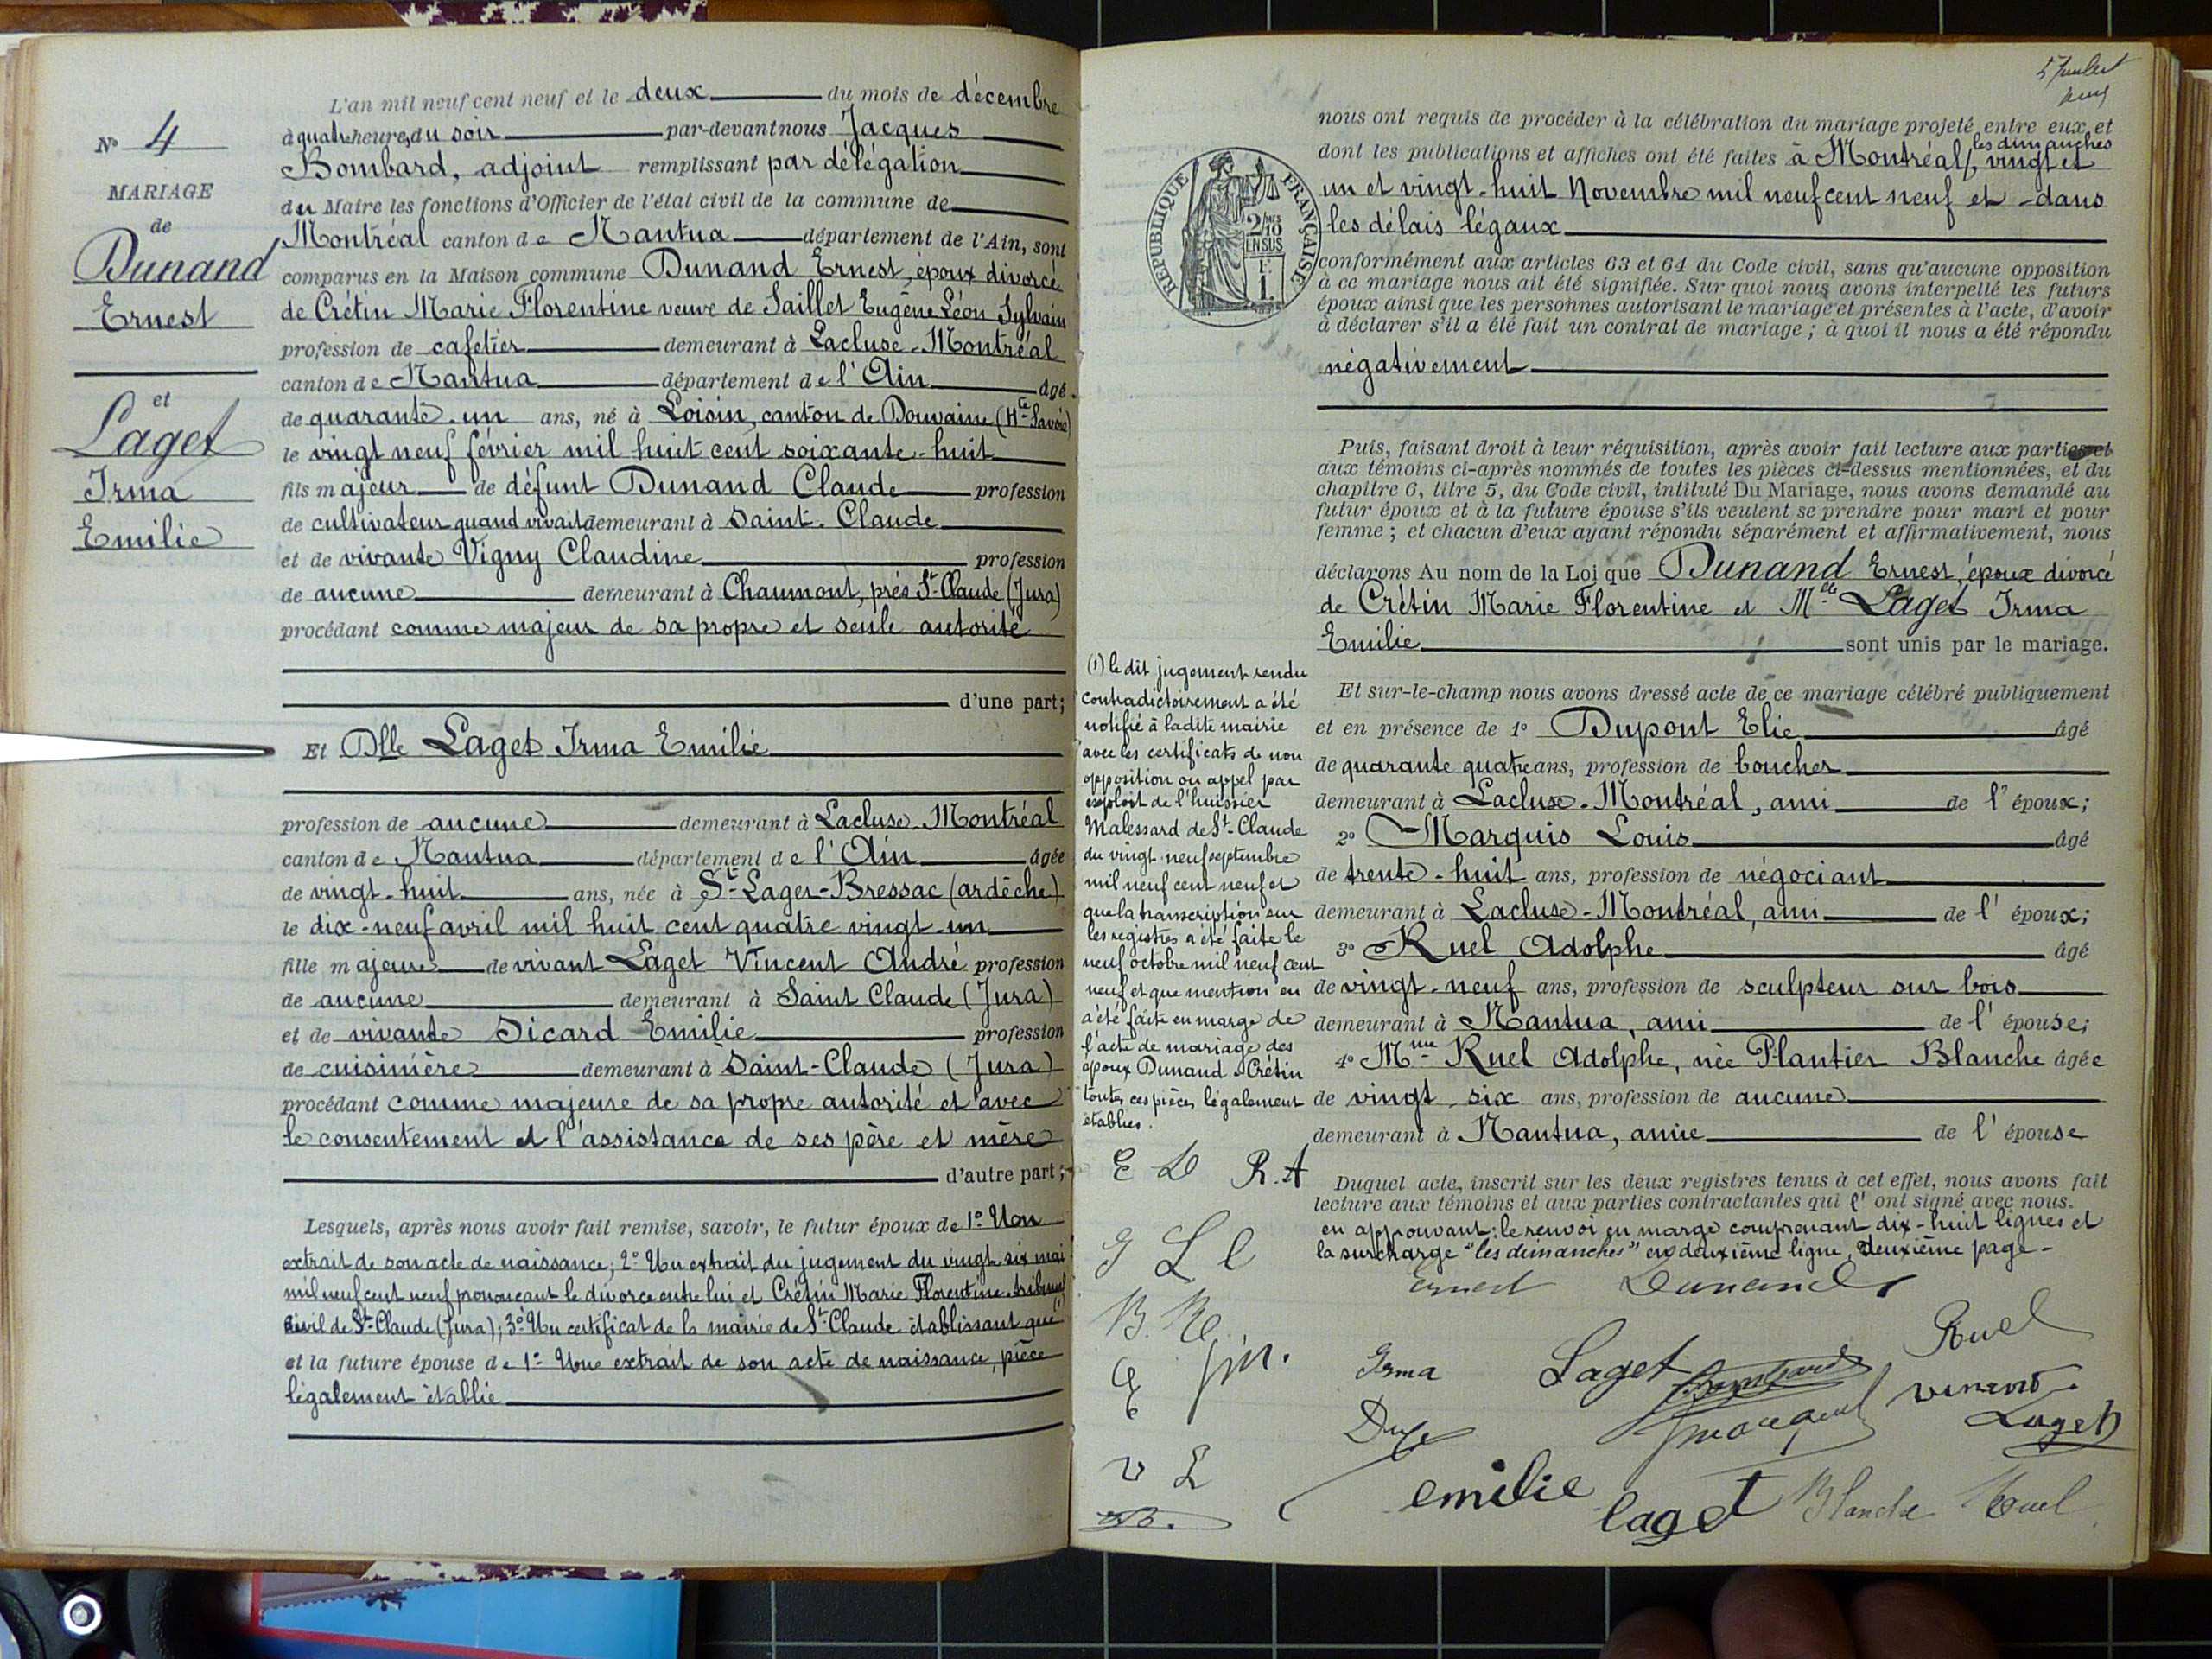 N° 4
MARIAGE
de
Dunand
Ernest
et
Laget
Irma
Emilie
L'an mil neuf cent neuf et le deux du mois de décembre
à quatre heures du soir par-devant nous Jacques
Bombard, adjoint remplissant par délégation
du Maire les fonctions d'Officier de l'état civil de la commune de
Montréal canton de Nantua département de l'Ain, sont
comparus en la Maison commune Dunand Ernest, époux divorcé
de Crétin Marie Florentine veuve de Saillet Eugène Léon Sylvain
profession de cafetier demeurant à Lacluse-Montréal
canton de Nantua département de l'Ain âgé
de quarante-un ans, né à Loisin, canton de Douvaine (Hte Savoie)
le vingt neuf février mil huit cent soixante-huit
fils majeur de défunt Dunand Claude profession
de cultivateur quand vivait demeurant à Saint-Claude
et de vivante Vigny Claudine profession
de aucune demeurant à Chaumont, près St-Claude (Jura)
procédant comme majeur de sa propre et seule autorité
d'une part;
Et Dlle Laget Irma Emilie
profession de aucune demeurant à Lacluse-Montréal
canton de Nantua département de l'Ain âgée
de vingt-huit ans, née à St-Lager-Bressac (ardèche)
le dix-neuf avril mil huit cent quatre vingt-un
fille majeure de vivant Laget Vincent André profession
de aucune demeurant à Saint Claude (Jura)
et de vivante Sicard Emilie profession
de cuisinière demeurant à Saint-Claude (Jura)
procédant comme majeure de sa propre autorité et avec
le consentement et l'assistance de ses père et mère
d'autre part;
Lesquels, après nous avoir fait remise, savoir, le futur époux de 1° Un
extrait de son acte de naissance; 2° Un extrait du jugement du vingt six mai
mil neuf cent neuf prononçant le divorce entre lui et Crétin Marie Florentine tribunal
civil de St-Claude (Jura); 3° Un certificat de la mairie de St-Claude établissant que (1)
et la future épouse de 1° Une extrait de son acte de naissance, pièce
légalement établie
REPUBLIQUE FRANÇAISE
2/10
EN SUS
1F
nous ont requis de procéder à la célébration du mariage projeté entre eux et
les dimanches
dont les publications et affiches ont été faites à Montréal, vingt et
un et vingt-huit Novembre mil neuf cent neuf et dans
les délais légaux
conformément aux articles 63 et 64 du Code civil, sans qu'aucune opposition
à ce mariage nous ait été signifiée. Sur quoi nous avons interpellé les futurs
époux ainsi que les personnes autorisant le mariage et présentes à l'acte, d'avoir
à déclarer s'il a été fait un contrat de mariage; à quoi il nous a été répondu
négativement
Puis, faisant droit à leur réquisition, après avoir fait lecture aux parties et
aux témoins ci-après nommés de toutes les pièces ci-dessus mentionnées, et du
chapitre 6, titre 5, du Code civil, intitulé Du Mariage, nous avons demandé au
futur époux et à la future épouse s'ils veulent se prendre pour mari et pour
femme; et chacun d'eux ayant répondu séparément et affirmativement, nous
déclarons Au nom de la Loi que Dunand Ernest, époux divorcé
de Crétin Marie Florentine et Mlle Laget Irma
Emilie sont unis par le mariage.
Et sur-le-champ nous avons dressé acte de ce mariage célébré publiquement
et en présence de 1° Dupont Elie âgé
de quarante quatre ans, profession de boucher
demeurant à Lacluse-Montréal, ami de l'époux;
2° Marquis Louis âgé
de trente-huit ans, profession de négociant
demeurant à Lacluse-Montréal, ami de l'époux;
3° Ruel Adolphe âgé
de vingt-neuf ans, profession de sculpteur sur bois
demeurant à Nantua, ami de l'épouse;
4° Mme Ruel Adolphe, née Plantier Blanche âgée
de vingt-six ans, profession de aucune
demeurant à Nantua, amie de l'épouse
Duquel acte, inscrit sur les deux registres tenus à cet effet, nous avons fait
lecture aux témoins et aux parties contractantes qui l'ont signé avec nous.
en approuvant: le renvoi en marge comprenant dix-huit lignes et
la surcharge "les dimanches" en deuxième ligne, deuxième page-
(1) le dit jugement rendu
contradictoirement a été
notifié à ladite mairie
avec les certificats de non
opposition ou appel par
exploit de l'huissier
Malessard de St-Claude
du vingt-neuf septembre
mil neuf cent neuf et
que la transcription sur
les registres a été faite le
neuf octobre mil neuf cent
neuf et que mention en
a été faite en marge de
l'acte de mariage des
époux Dunand & Crétin
toutes ces pièces légalement
établies.
E D R.A
L
V L
Ernest Dunand
Ruel
Irma Laget
Laget
emilie
laget Blanche Ruel